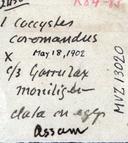 1 Coccystes
coromandus
X May 18, 1902
c/3 Garrulax
moniliger
data on eggs
Assam
MVZ 13020